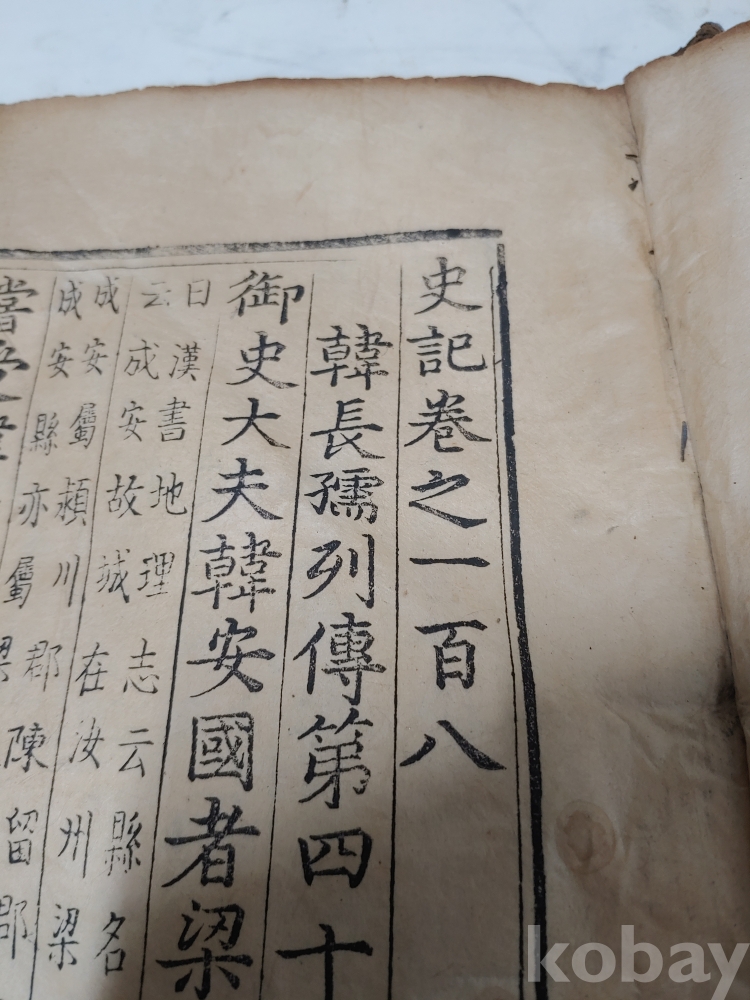 史記卷之一百八
韓長孺列傳第四十
御史大夫韓安國者梁
曰漢書地理志云縣名
云成安故城在汝州梁
成安屬頴川郡陳留郡
成安縣亦屬
嘗受
kobay